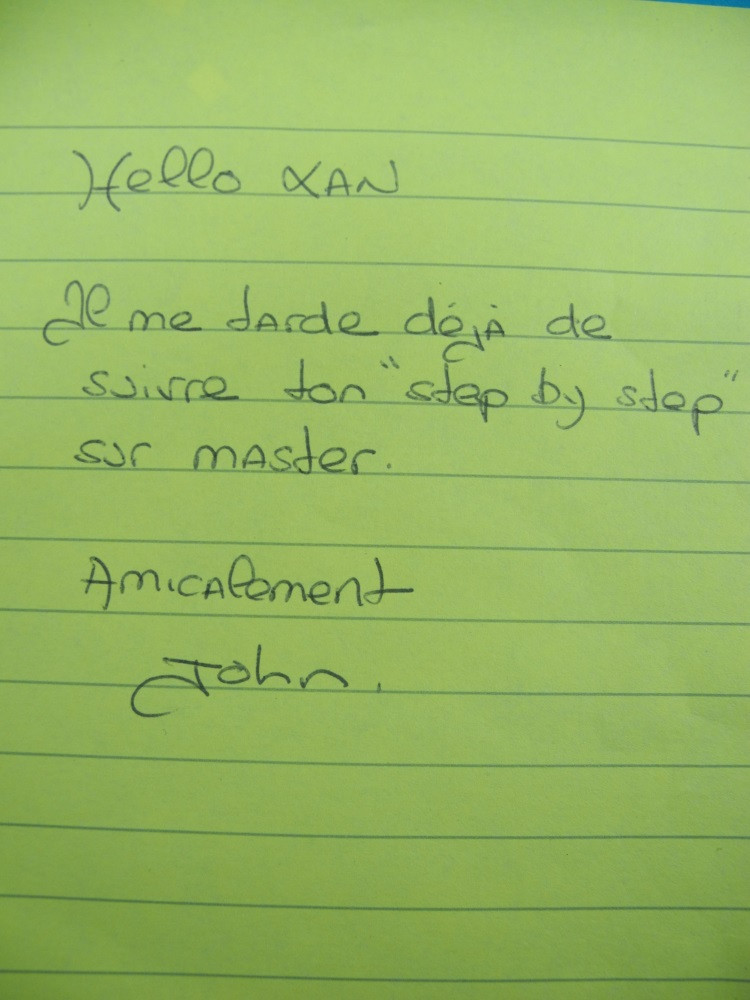 Hello XAN
Il me tarde déjà de
suivre ton "step by step"
sur master.
Amicalement
John.